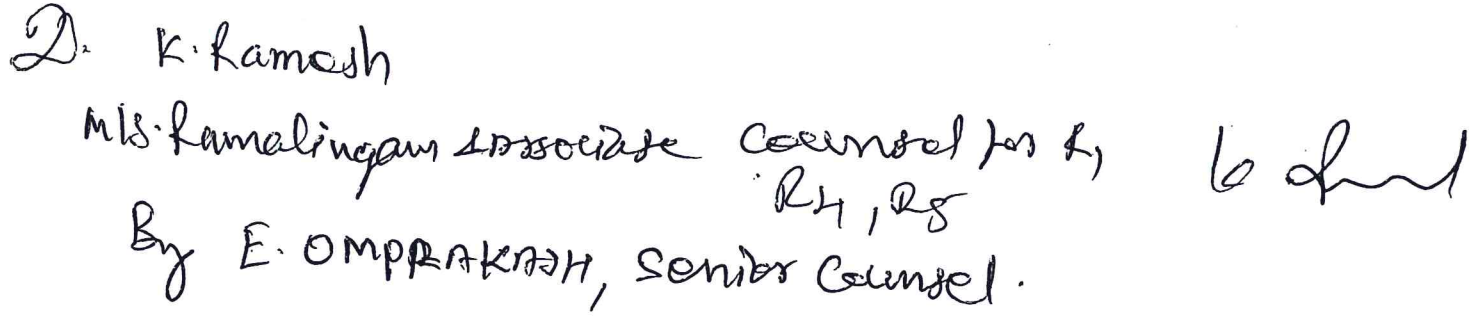 2. K. Ramesh
M/s. Ramalingam & Associate Counsel for R1
R4, R5
By E. OMPRAKASH, Senior Counsel.